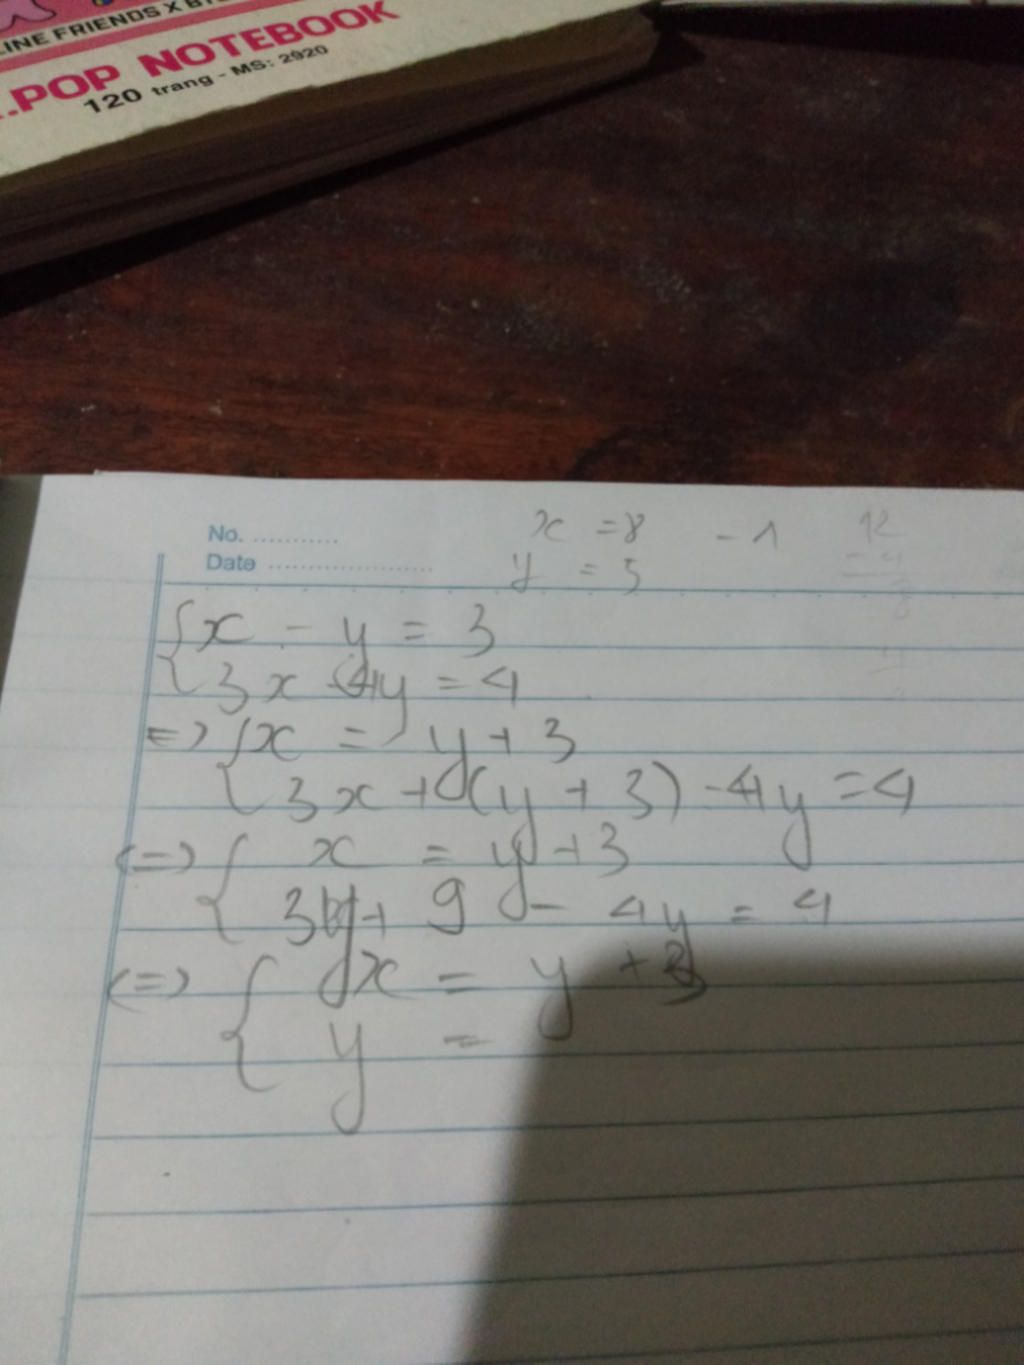 LINE FRIENDS X BT
.POP NOTEBOOK
120 trang - MS: 2920
No. ...........
Date ....................
x = 8 - 1
y = 5
12
- 4
8
{x - y = 3
{3x - 4y = 4
=> {x = y + 3
{3x + (y + 3) - 4y = 4
<=> { x = y + 3
{3y + 9 - 4y = 4
<=> { x = y + 3
{ y =